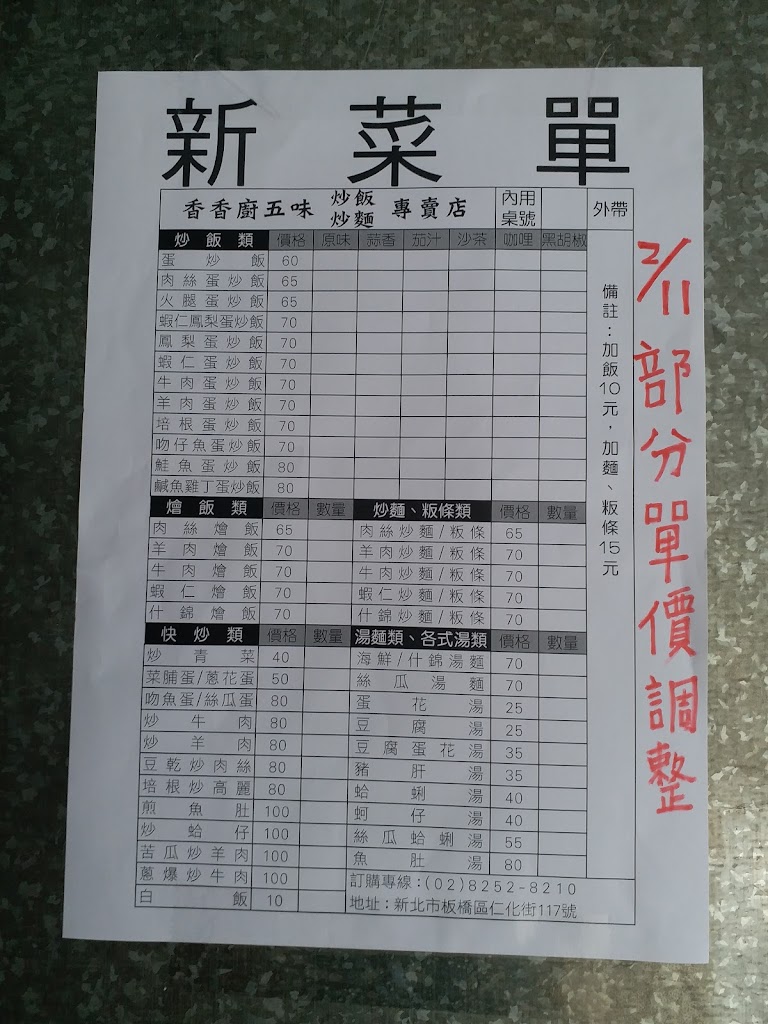 新菜單
香香廚五味 炒飯 炒麵 專賣店 內用桌號 外帶
炒飯類 價格 原味 蒜香 茄汁 沙茶 咖哩 黑胡椒
蛋炒飯 60
肉絲蛋炒飯 65
火腿蛋炒飯 65
蝦仁鳳梨蛋炒飯 70
鳳梨蛋炒飯 70
蝦仁蛋炒飯 70
牛肉蛋炒飯 70
羊肉蛋炒飯 70
培根蛋炒飯 70
吻仔魚蛋炒飯 70
鮭魚蛋炒飯 80
鹹魚雞丁蛋炒飯 80
燴飯類 價格 數量 炒麵、粄條類 價格 數量
肉絲燴飯 65 肉絲炒麵/粄條 65
羊肉燴飯 70 羊肉炒麵/粄條 70
牛肉燴飯 70 牛肉炒麵/粄條 70
蝦仁燴飯 70 蝦仁炒麵/粄條 70
什錦燴飯 70 什錦炒麵/粄條 70
快炒類 價格 數量 湯麵類、各式湯類 價格 數量
炒青菜 40 海鮮/什錦湯麵 70
菜脯蛋/蔥花蛋 50 絲瓜湯麵 70
吻魚蛋/絲瓜蛋 80 蛋花湯 25
炒牛肉 80 豆腐湯 25
炒羊肉 80 豆腐蛋花湯 35
豆乾炒肉絲 80 豬肝湯 35
培根炒高麗 80 蛤蜊湯 40
煎魚肚 100 蚵仔湯 40
炒蛤仔 100 絲瓜蛤蜊湯 55
苦瓜炒羊肉 100 魚肚湯 80
蔥爆炒牛肉 100 訂購專線：(02)8252-8210
白飯 10 地址：新北市板橋區仁化街117號
備註：加飯10元，加麵、粄條15元
2/11部分單價調整